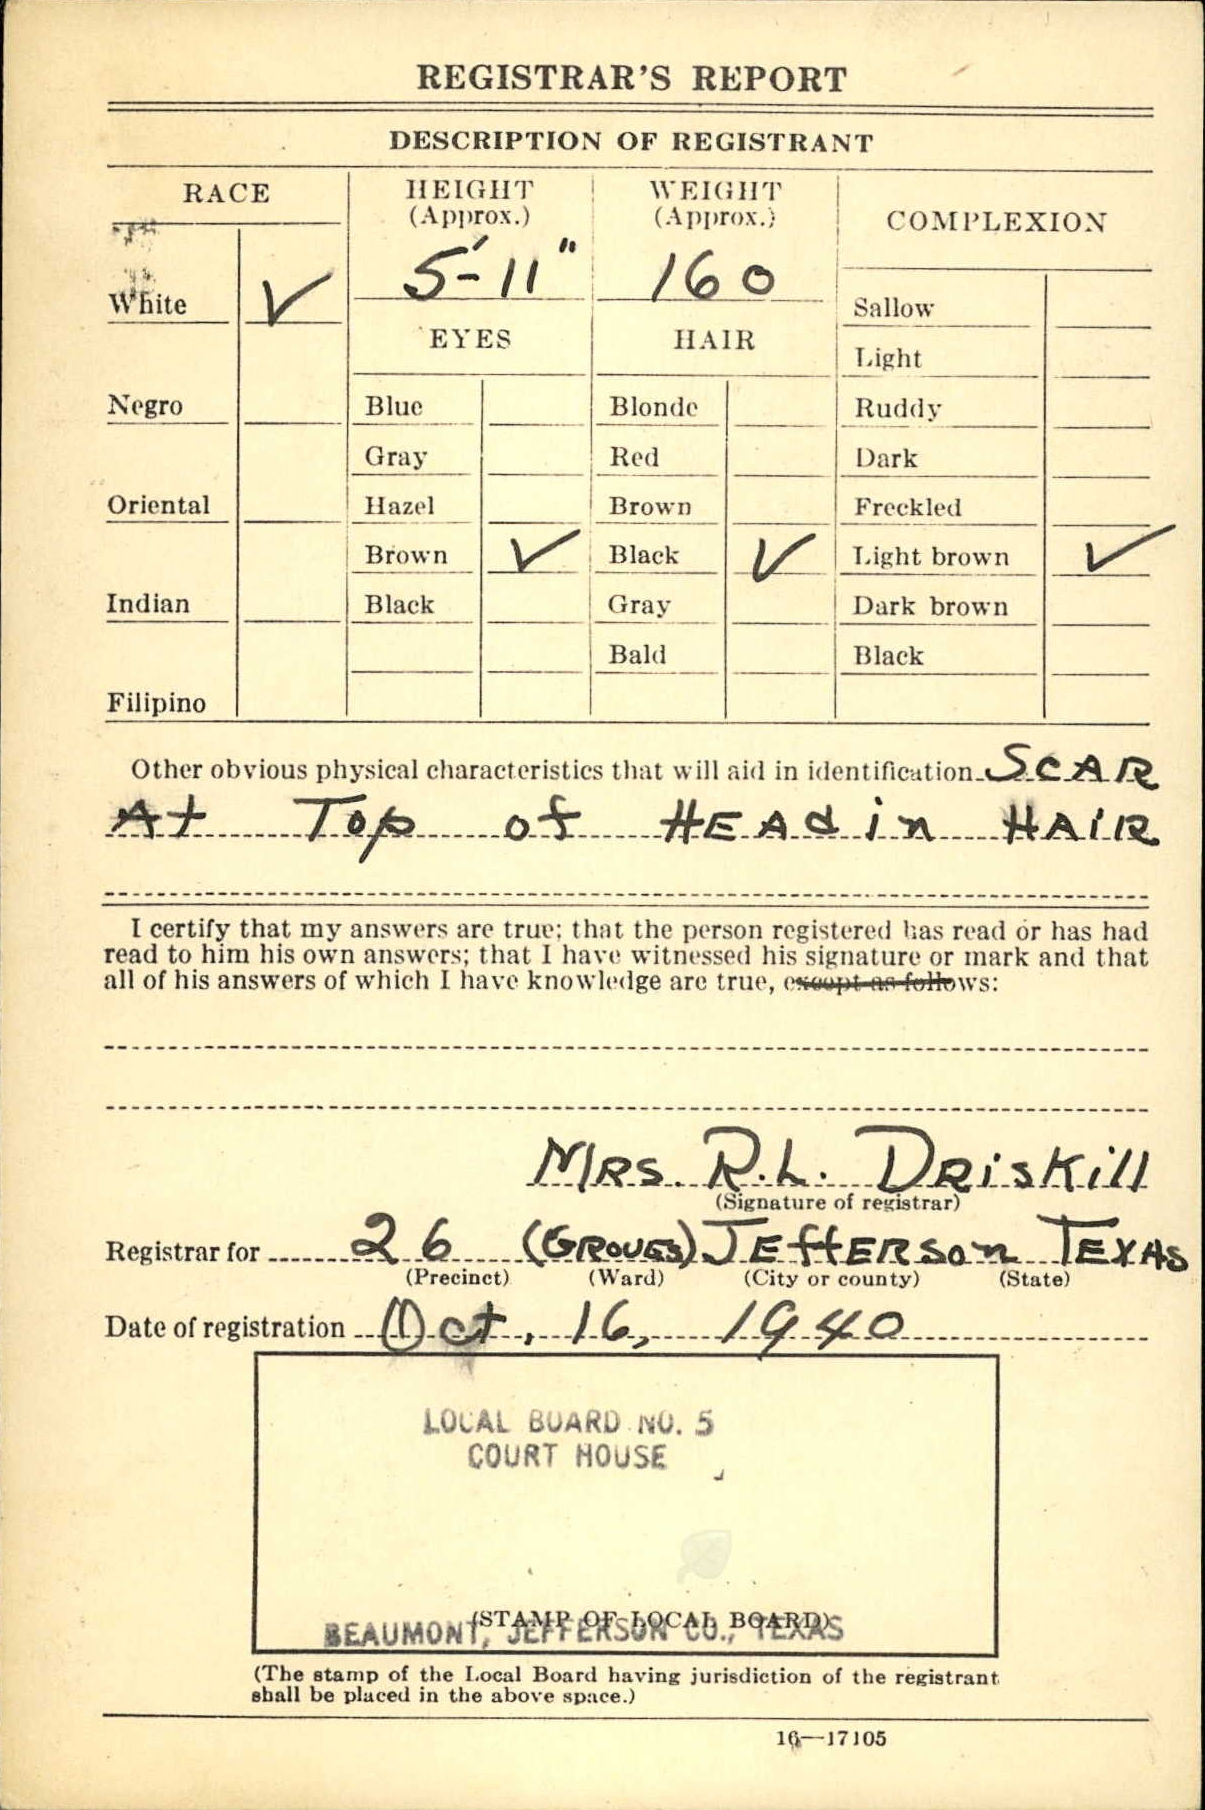 REGISTRAR'S REPORT
DESCRIPTION OF REGISTRANT
RACE
HEIGHT
(Approx.)
WEIGHT
(Approx.)
COMPLEXION
5'-11"
160
White ✓
Sallow
EYES
HAIR
Light
Negro
Blue
Blonde
Ruddy
Gray
Red
Dark
Oriental
Hazel
Brown
Freckled
Brown ✓
Black ✓
Light brown ✓
Indian
Black
Gray
Dark brown
Bald
Black
Filipino
Other obvious physical characteristics that will aid in identification SCAR
At Top of HEAd in HAiR
I certify that my answers are true; that the person registered has read or has had
read to him his own answers; that I have witnessed his signature or mark and that
all of his answers of which I have knowledge are true, except as follows:
MRS. R.L. DRiSKill
(Signature of registrar)
Registrar for 26 (GROVES) JEffERSon TEXAS
(Precinct) (Ward) (City or county) (State)
Date of registration Oct, 16, 1940
LOCAL BOARD NO. 5
COURT HOUSE
(STAMP OF LOCAL BOARD)
BEAUMONT, JEFFERSON CO., TEXAS
(The stamp of the Local Board having jurisdiction of the registrant
shall be placed in the above space.)
16—17105